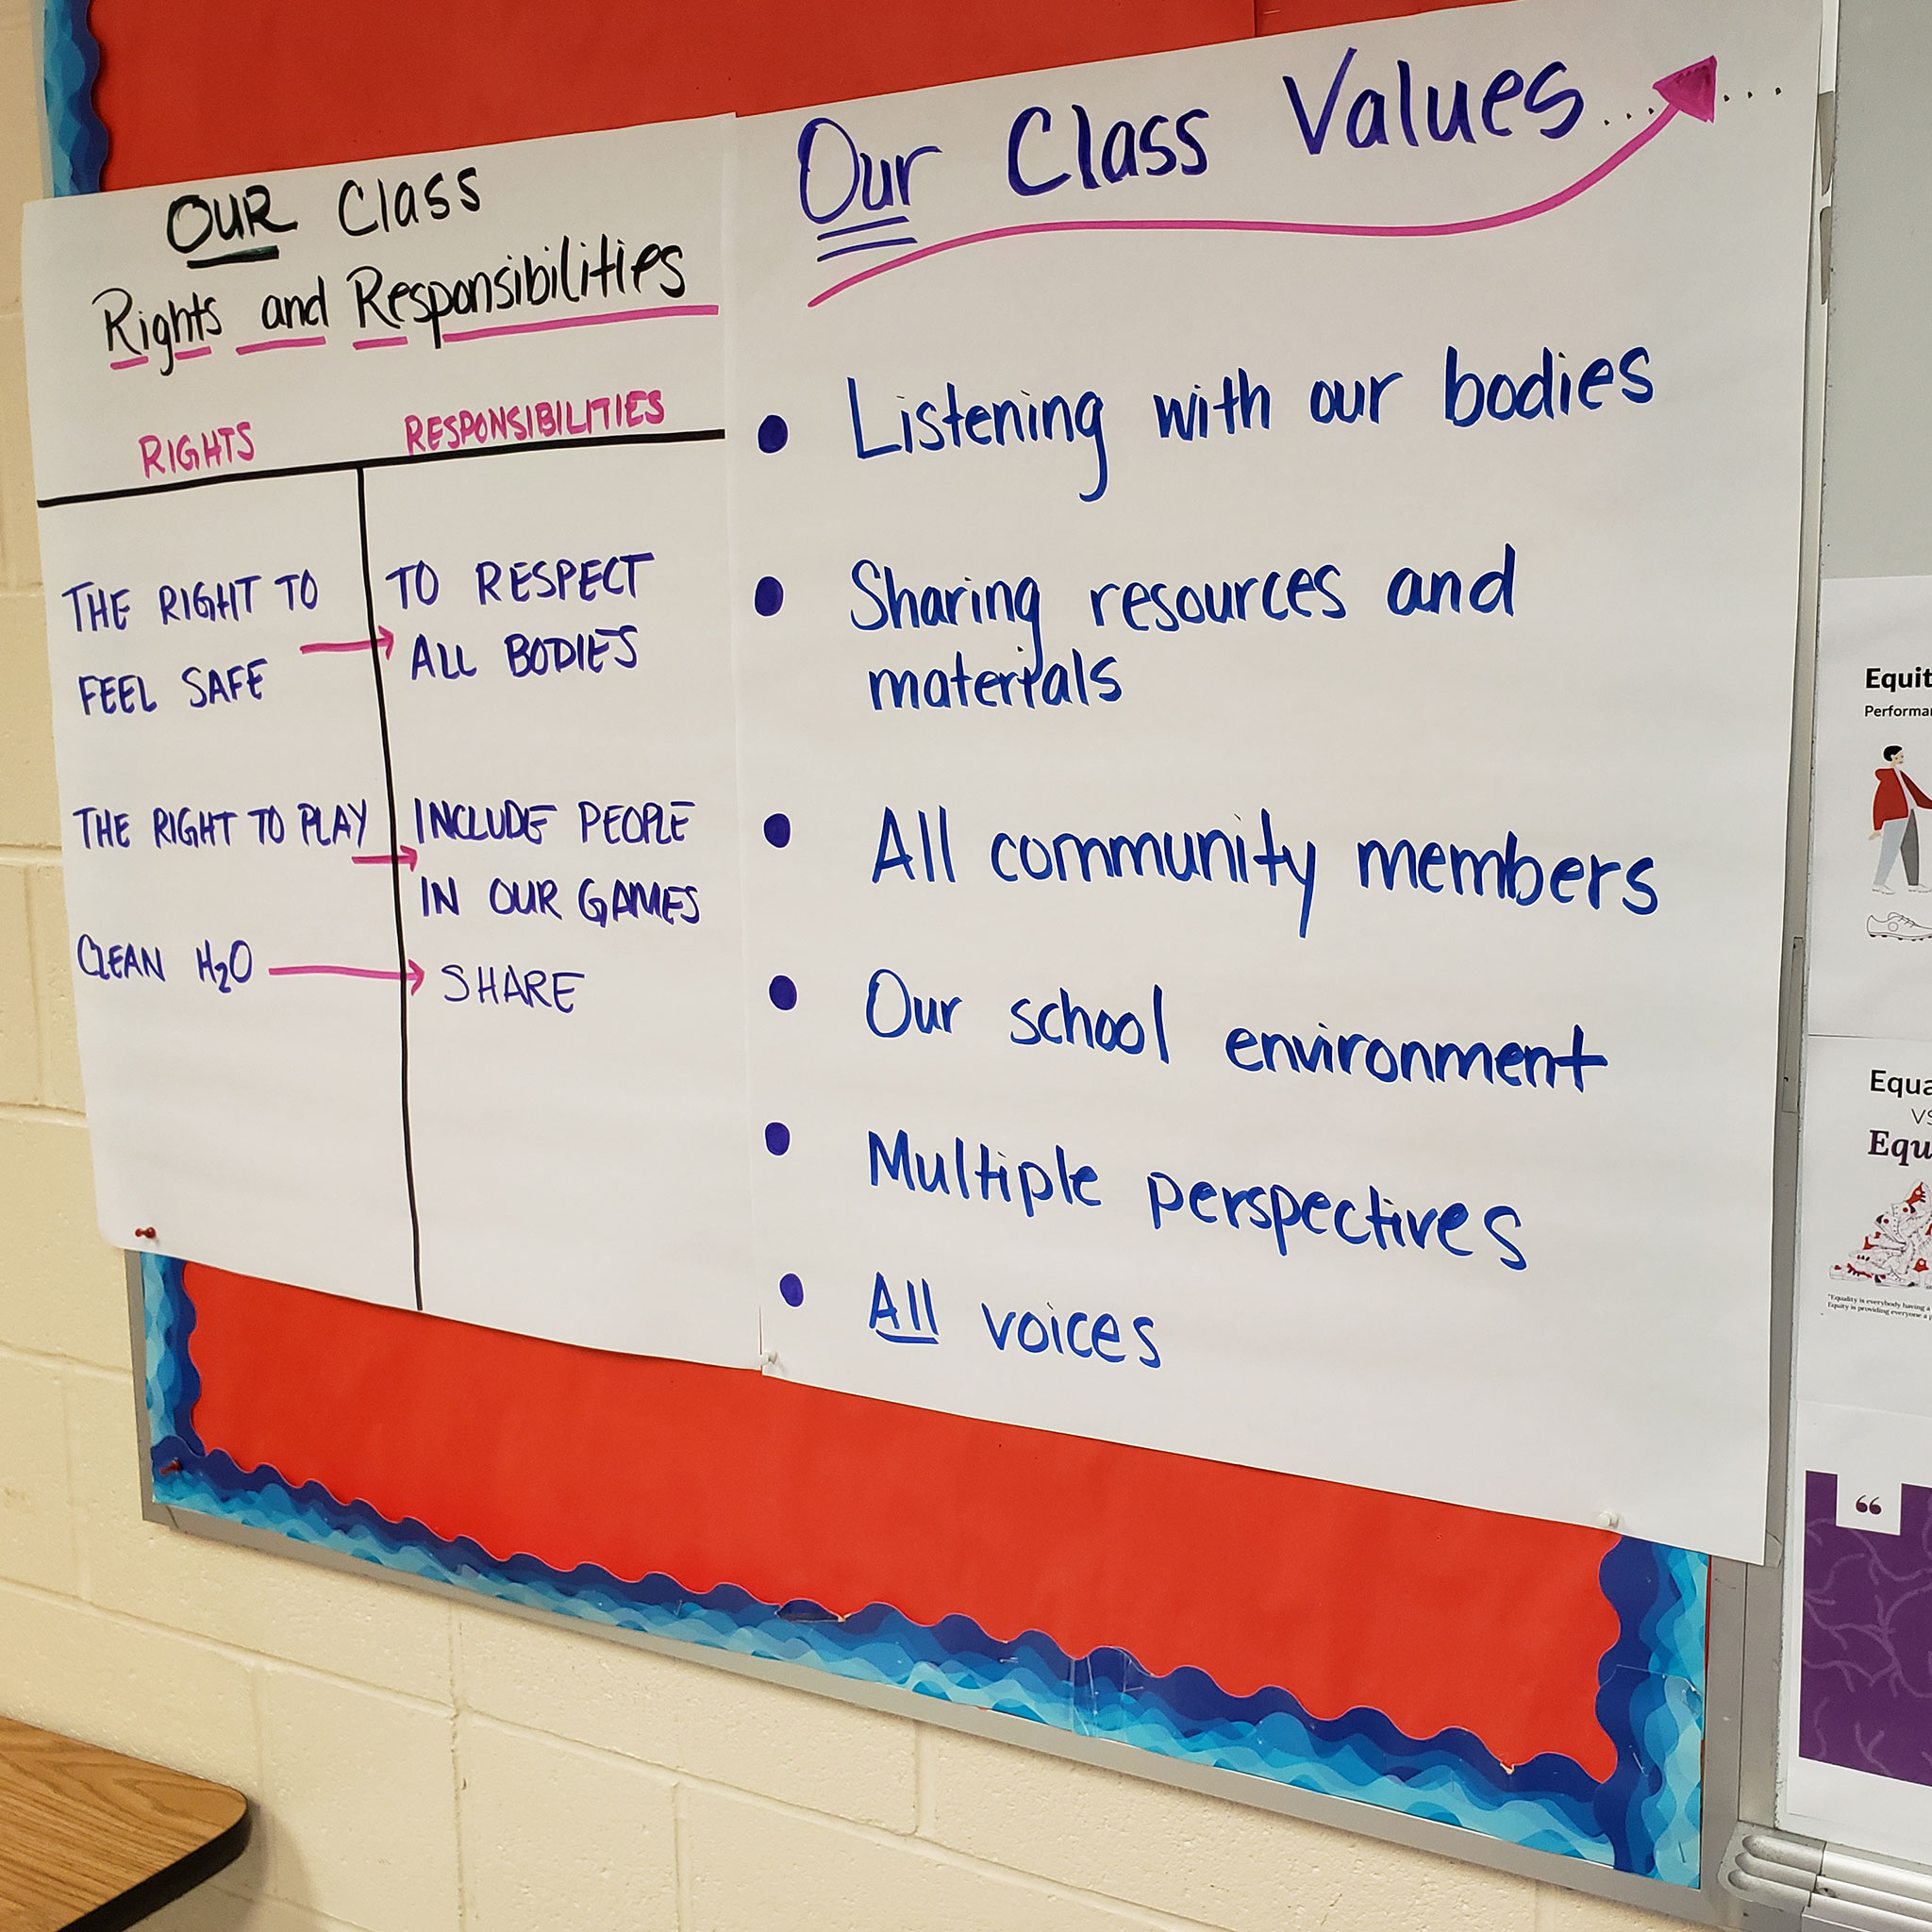 OUR Class
Rights and Responsibilities
RIGHTS
RESPONSIBILITIES
THE RIGHT TO
FEEL SAFE
TO RESPECT
ALL BODIES
THE RIGHT TO PLAY
INCLUDE PEOPLE
IN OUR GAMES
CLEAN H₂O
SHARE
Our Class Values
• Listening with our bodies
• Sharing resources and
materials
• All community members
• Our school environment
• Multiple perspectives
• All voices
VS
"Equality is everybody having a
Equity is providing everyone a